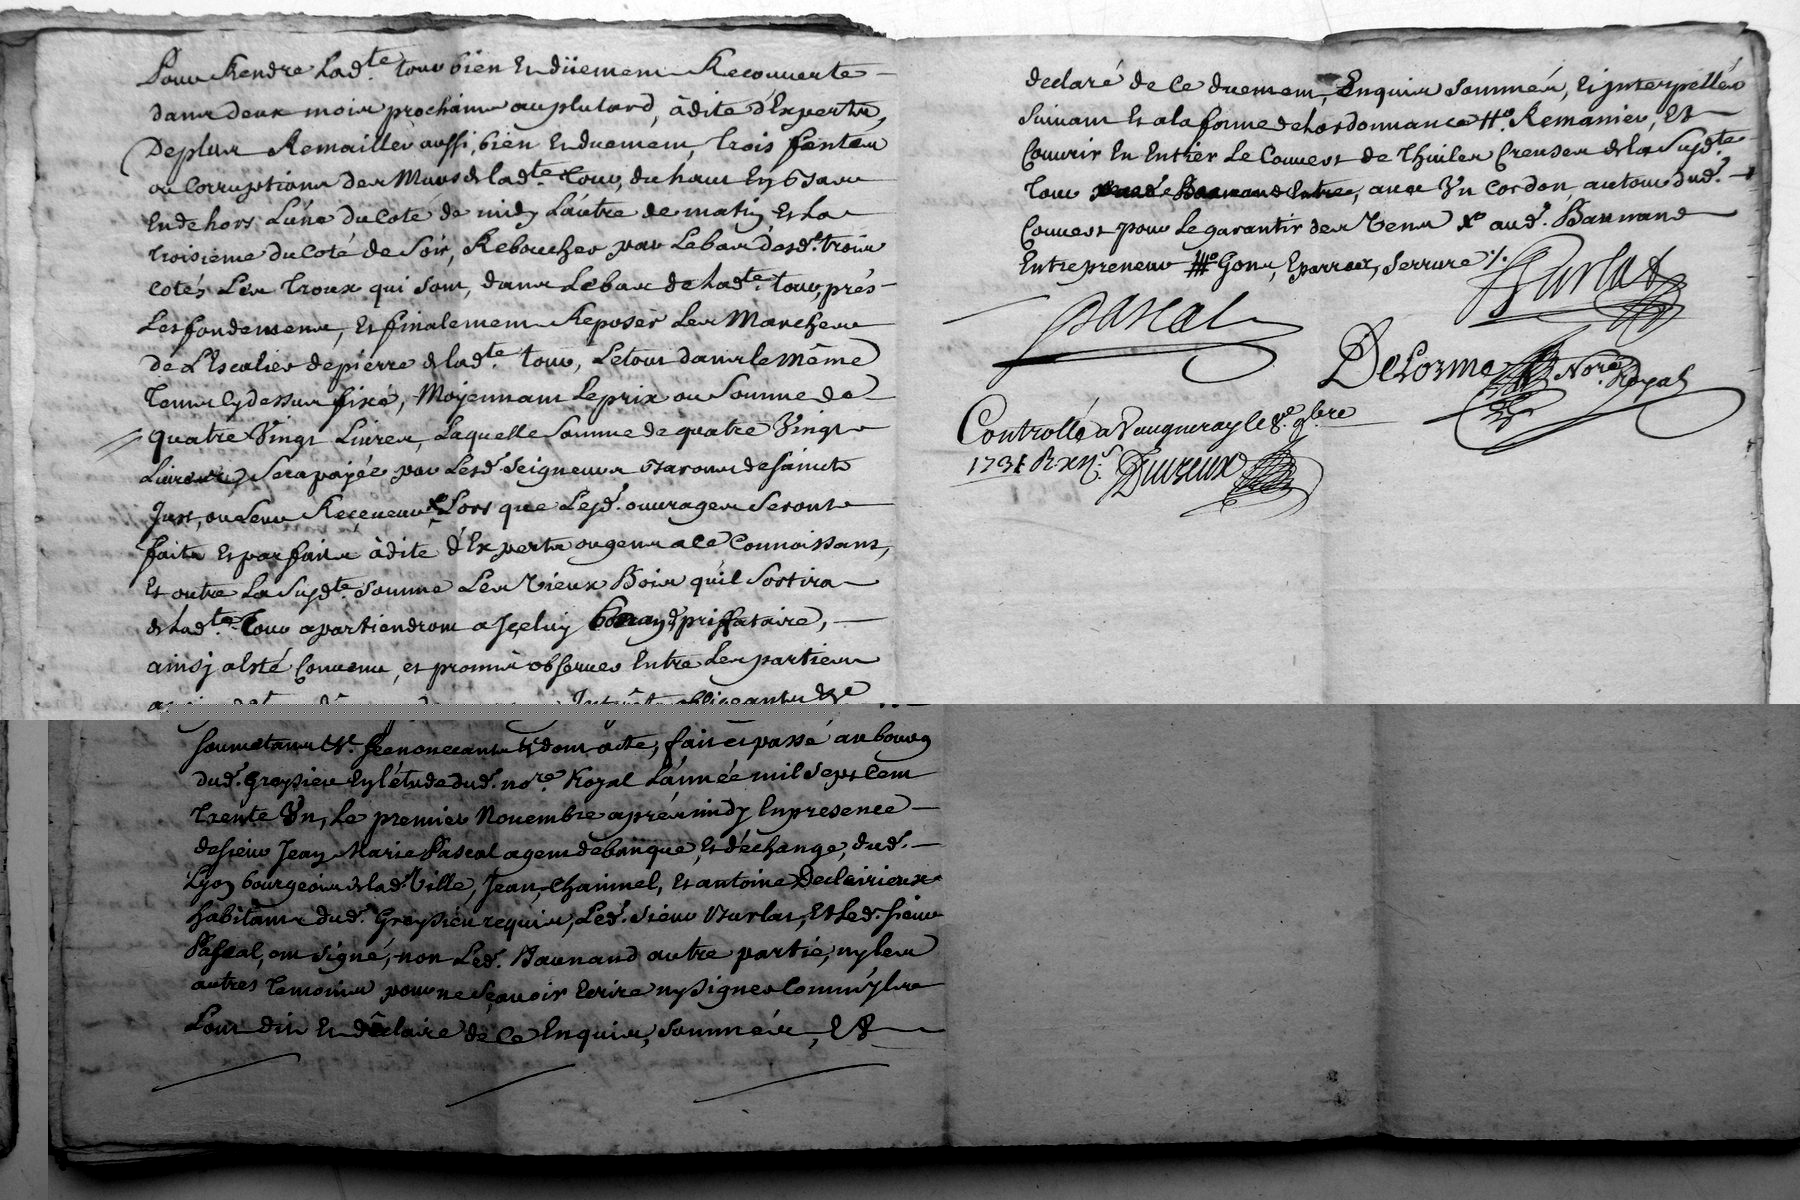 Pour Rendre Lad.te tour bien Et düement Recouverte
dans deux mois prochains au plutard, à dite d'Experts,
Deplus Remailler aussi, bien Et duement, trois fentes
ou Corruptions des Murs de lad.te tour, du haut En bas
En dehors L'une du Coté de midy L'autre de matin Et La
troisieme du Coté de Soir, Reboucher par Le bas desd. trois
cotés Les trous qui Sont, dans Le bas de Lad.te tour, près
Les fondements, Et finalement Reposer Les Marches
de L'Escalier de pierre de lad.te tour, Le tout dans le même
tems Cy dessus fixé, Moyennant Le prix ou Somme de
quatre Vingt Livres, Laquelle Somme de quatre Vingt
Livres Sera payée par Lesd. Seigneurs Barons de Sainct
Just, ou Leur Receveur Lors que Lesd. ouvrages Seront
faits Et parfaits à dite d'Experts ou gens a ce Connoissant,
Et outre La Susd.te Somme Les Vieux Bois qu'il Sortira
de Lad.te Tour apartiendront a Iceluy prifataire,
ainsj a Esté Convenu, et promis observer Entre Les parties
obligeants
Soumettants Renonceants Et dont acte, fait et passé au bourg
dud. Grezieu En l'étude dud. no.re Royal L'année mil Sept Cent
trente Un, Le premier Novembre après midy En presence
de Sieur Jean Marie Pascal agent de banque, Et d'échange, dud.
Lyon bourgeois de lad. Ville, Jean Chainnel, Et antoine Declerieux
habitants dud. Grezieu requis, Led. Sieur Burlat, Et Led. Sieur
Pascal, ont Signé, non Led. Baunand autre partie, ny les
autres temoins pour ne Sçavoir Ecrire ny Signer Comm'ils
L'ont dit Et déclaré de Ce Enquis, Sommés, &
declaré de Ce duement, Enquis Sommés, Et Interpellés
Suivant Et a la forme de L'ordonnance #o Remanier, Et
Couvrir En Entier Le Couvert de Thuiles Creuses de la Susd.te
Tour avec Un Cordon, autour dud.
Couvert pour Le garantir des Vents Xo aud. Baunand
Entrepreneur #o Gons, Eparres, Serrure %.
Burlat
Pascal
DeLorme Nore Royal
Controllé a Vaugneray le 8.e 9bre
1731 R. xij s. Duvieux